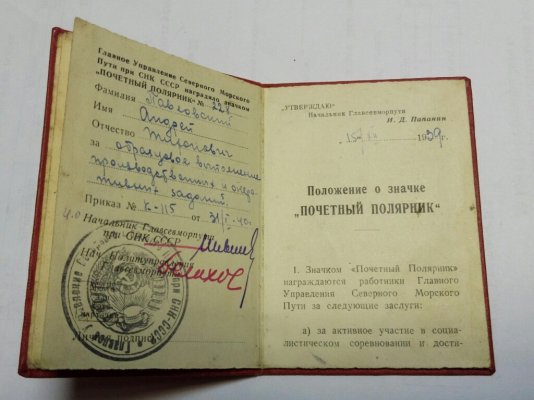 Главное Управление Северного Морского
Пути при СНК СССР наградило значком
„ПОЧЕТНЫЙ ПОЛЯРНИК" № 228
Фамилия Павловский
Имя Андрей
Отчество
за образцовое выполнение
производственных и опера-
тивных заданий.
Приказ № К-115 от
Начальник Главсевморпути
при СНК СССР
Нач. Политуправления
Главсевморпути
Личн. подпись
„УТВЕРЖДАЮ"
Начальник Главсевморпути
И. Д. Папанин
1939г.
Положение о значке
„ПОЧЕТНЫЙ ПОЛЯРНИК"
1. Значком «Почетный Полярник»
награждаются работники Главного
Управления Северного Морского
Пути за следующие заслуги:
а) за активное участие в социа-
листическом соревновании и доста-